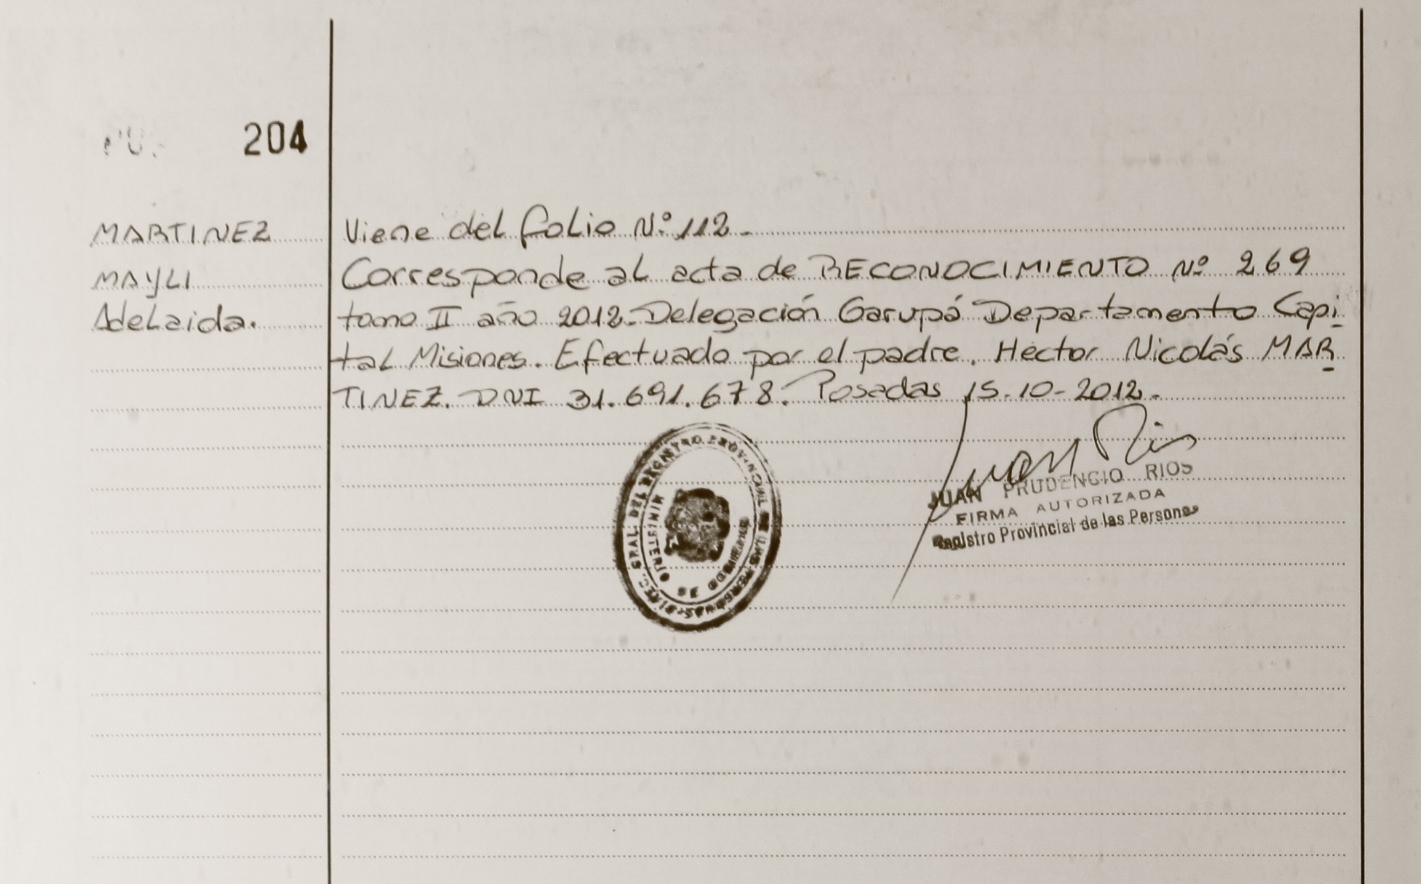 204
MARTINEZ
MAYLI
Adelaida.
Viene del folio Nº 112.-
Corresponde al acta de RECONOCIMIENTO Nº 269
tomo II año 2012. Delegación Garupá Departamento Capi-
tal Misiones. Efectuado por el padre, Hector Nicolás MAR-
TINEZ. DNI 31.691.678. Posadas 15-10-2012.-
Juan Rios
JUAN PRUDENCIO RIOS
FIRMA AUTORIZADA
Registro Provincial de las Personas
DIREC. GRAL. DEL REGISTRO PROVINCIAL DE LAS PERSONAS
MINISTERIO DE GOBIERNO